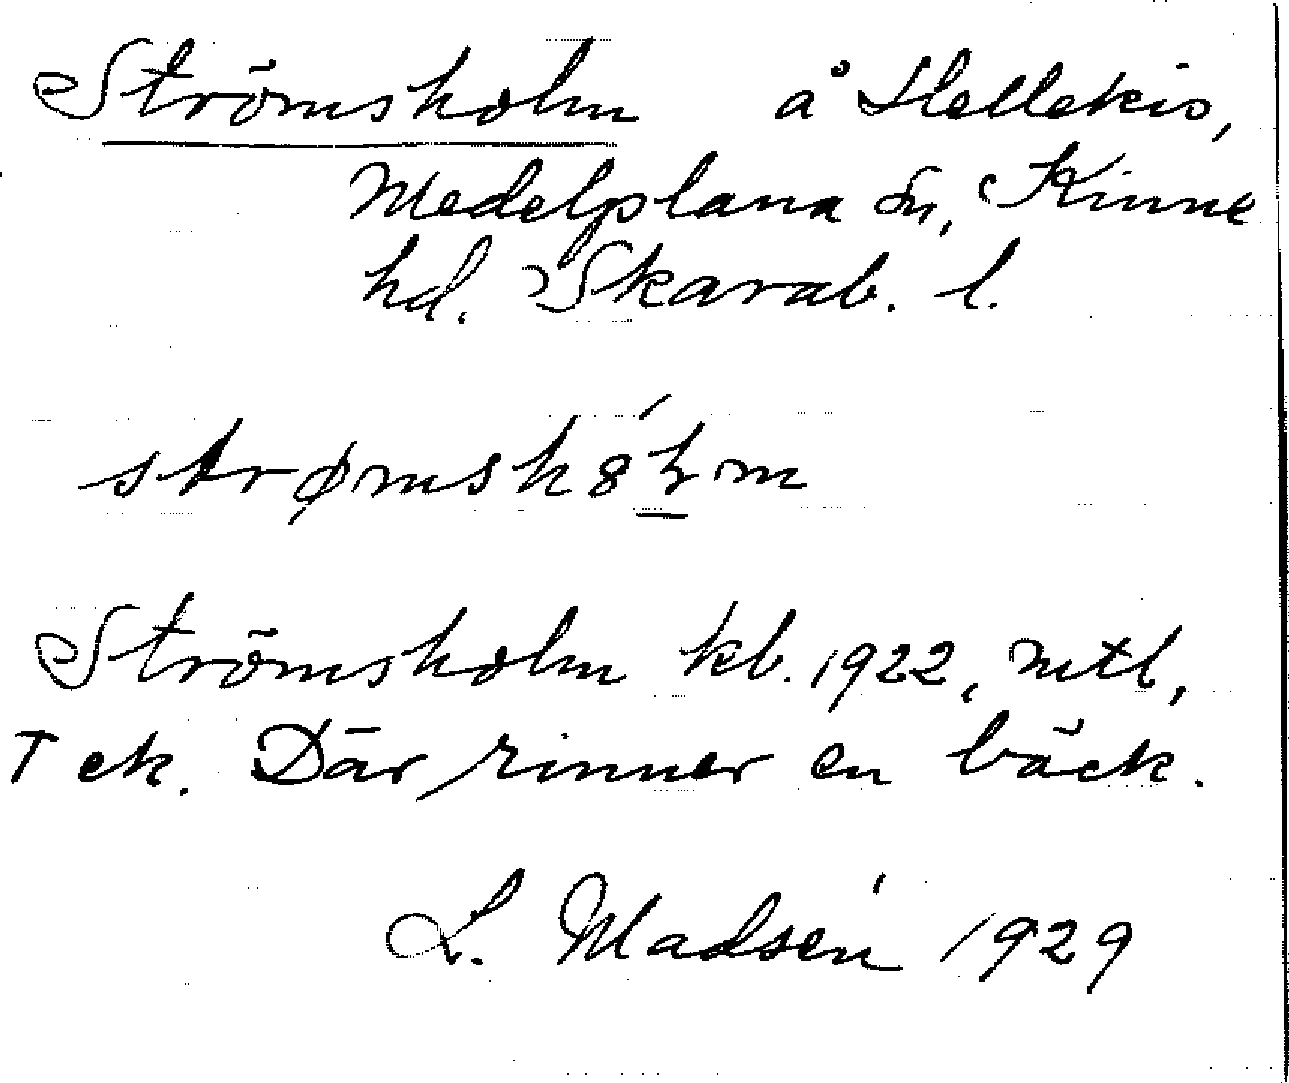 Strömsholm å Hellekis,
Medelplana sn, Kinne
hd. Skarab. l.
Strömsholm kb. 1922, mtl,
T ek. Där rinner en bäck.
L. Madsén 1929